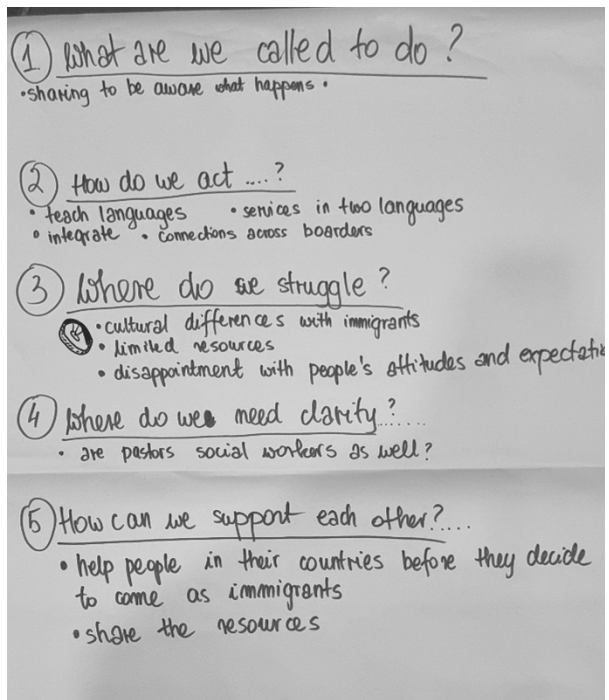 1 What are we called to do?
• sharing to be aware what happens •
2 How do we act ....?
• teach languages • services in two languages
• integrate • connections across boarders
3 Where do we struggle?
• cultural differences with immigrants
• limited resources
• disappointment with people's attitudes and expectatio
4 Where do we need clarity?......
• are pastors social workers as well?
5 How can we support each other?....
• help people in their countries before they decide
to come as immigrants
• share the resources